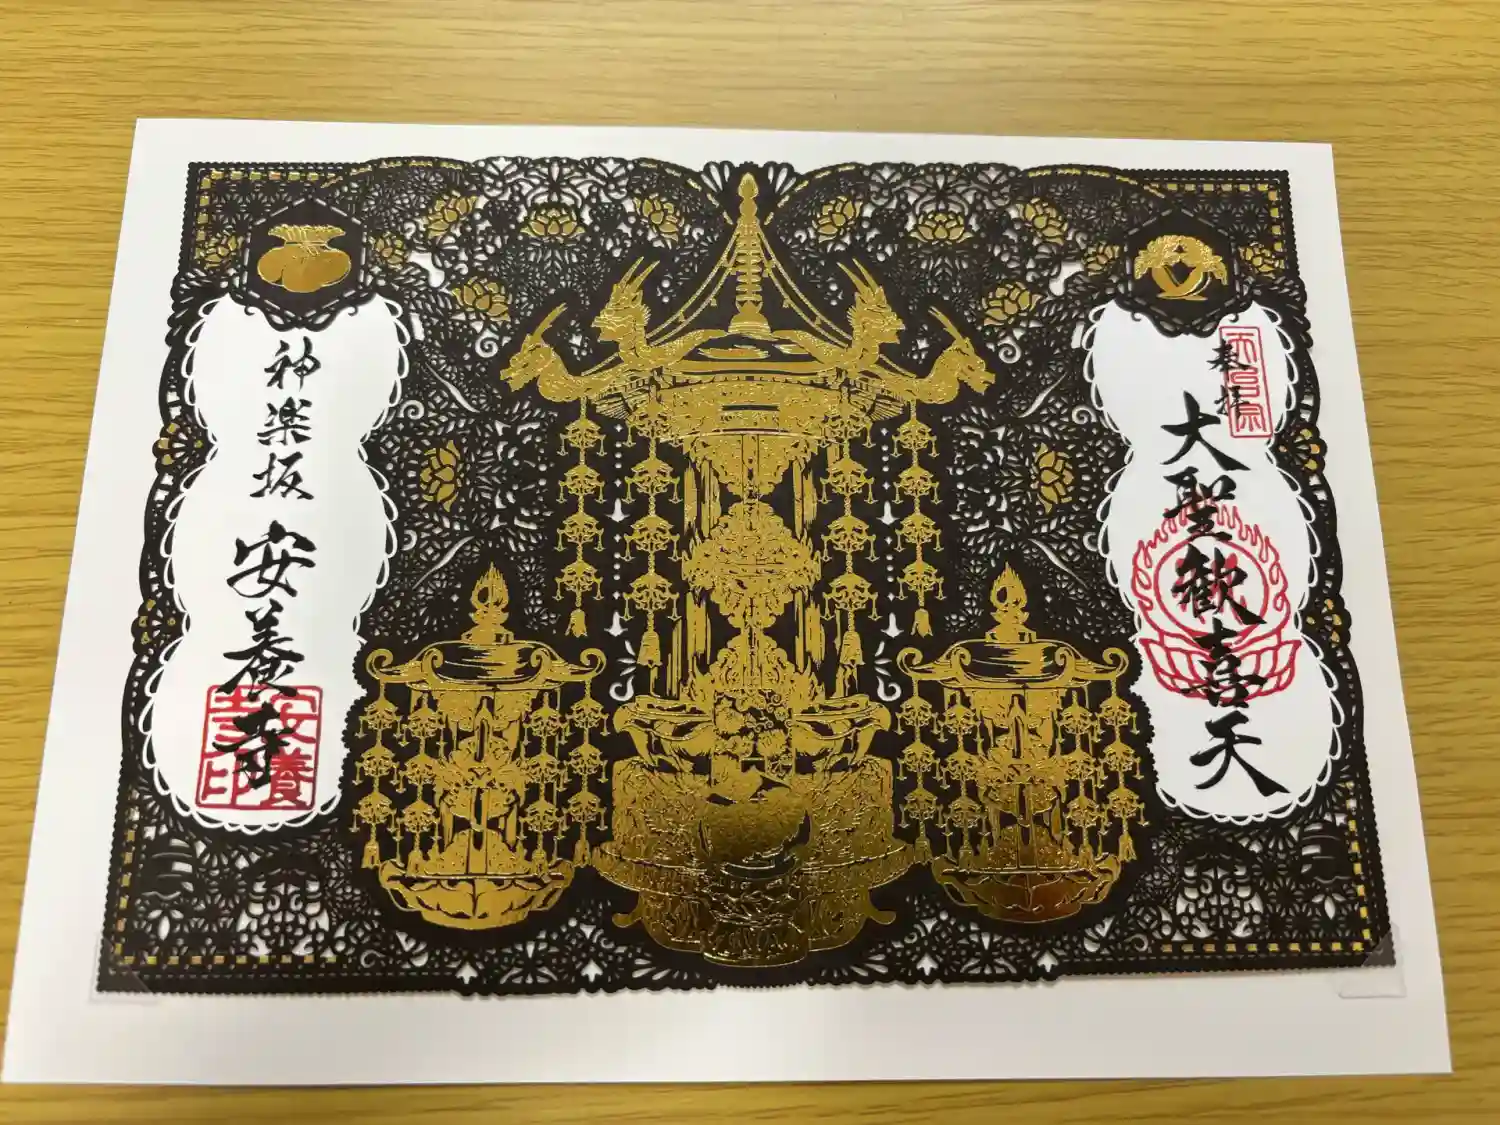 奉拝
天台宗
大聖歓喜天
神楽坂
安養寺
安養
寺印